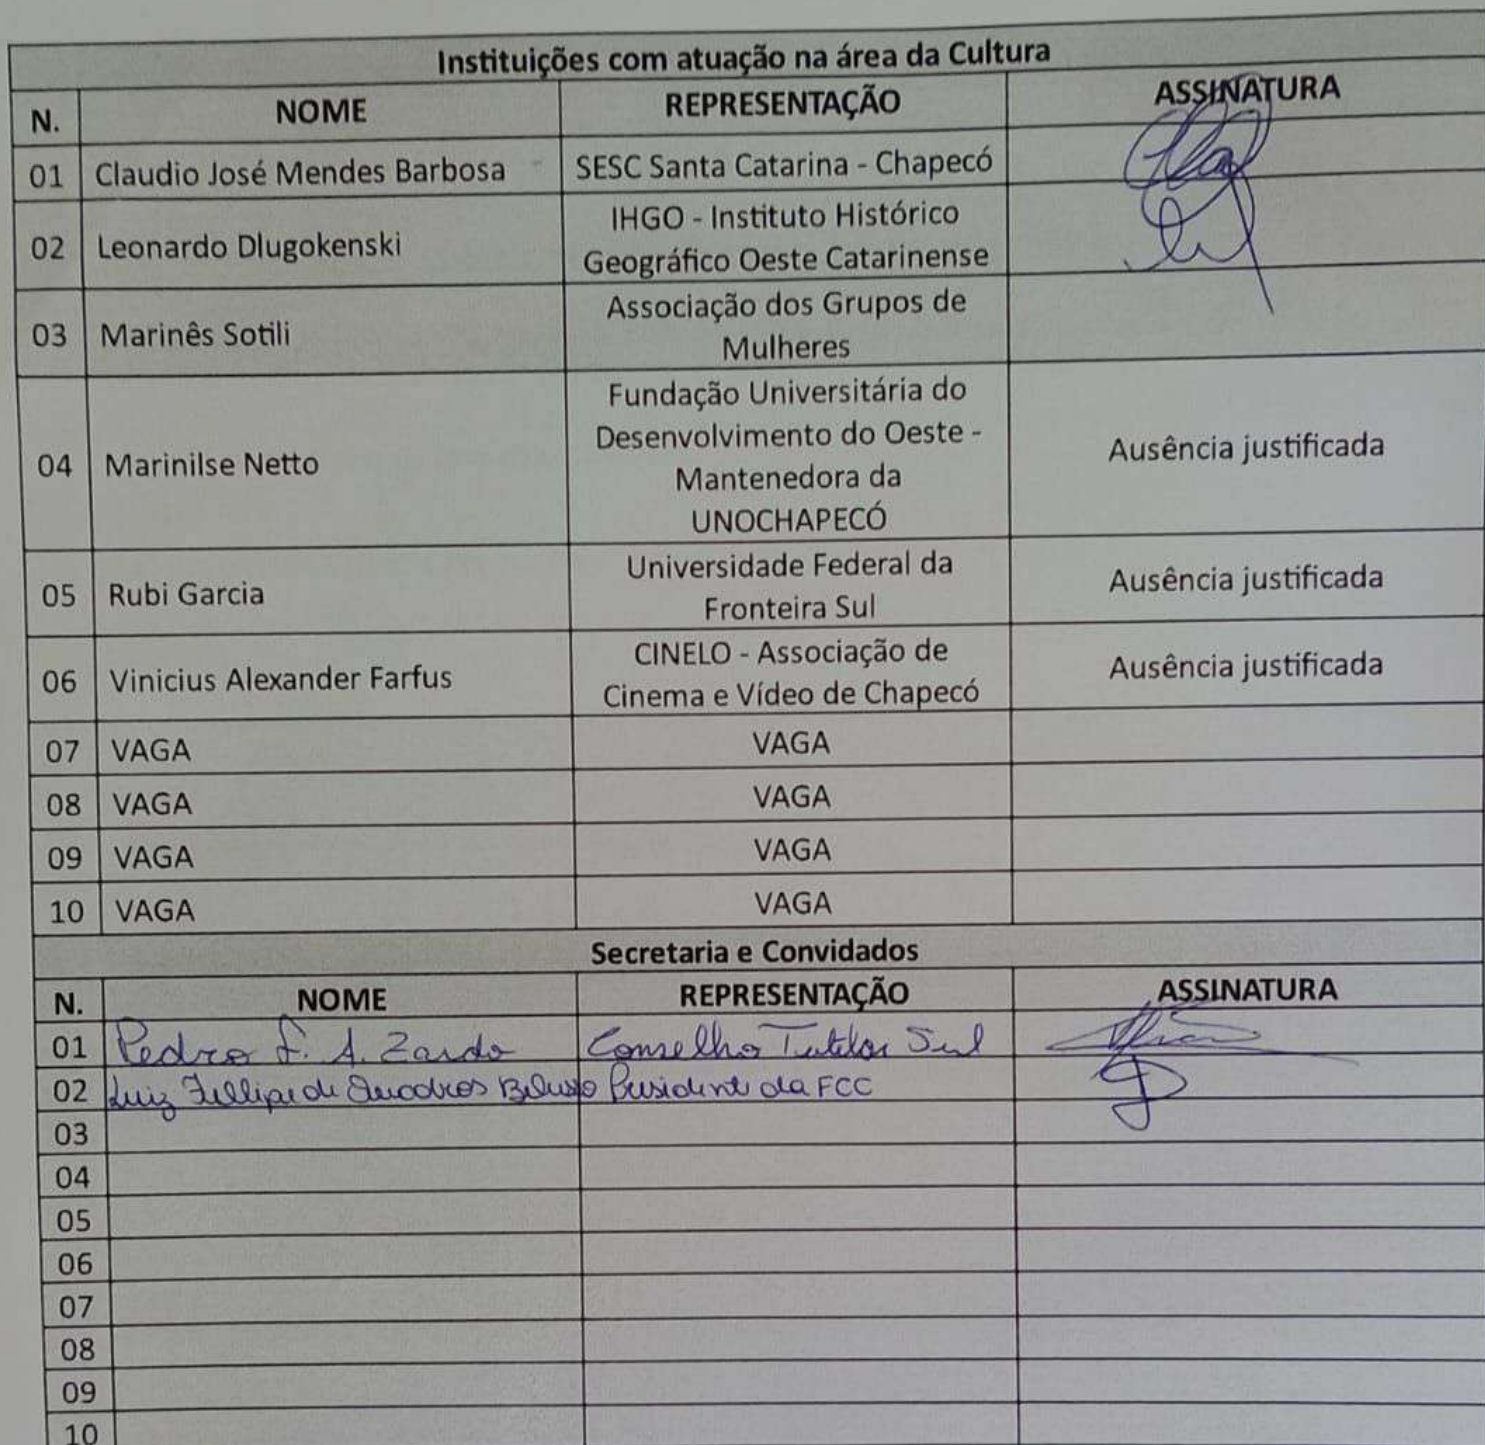 Instituições com atuação na área da Cultura
N. NOME REPRESENTAÇÃO ASSINATURA
01 Claudio José Mendes Barbosa SESC Santa Catarina - Chapecó
02 Leonardo Dlugokenski IHGO - Instituto Histórico
Geográfico Oeste Catarinense
03 Marinês Sotili Associação dos Grupos de
Mulheres
04 Marinilse Netto Fundação Universitária do
Desenvolvimento do Oeste -
Mantenedora da
UNOCHAPECÓ
Ausência justificada
05 Rubi Garcia Universidade Federal da
Fronteira Sul
Ausência justificada
06 Vinicius Alexander Farfus CINELO - Associação de
Cinema e Vídeo de Chapecó
Ausência justificada
07 VAGA VAGA
08 VAGA VAGA
09 VAGA VAGA
10 VAGA VAGA
Secretaria e Convidados
N. NOME REPRESENTAÇÃO ASSINATURA
01 Pedro F. A. Zardo Conselho Tutelar Sul
02 Luiz Fellipe de Quadros Presidente da FCC
03
04
05
06
07
08
09
10